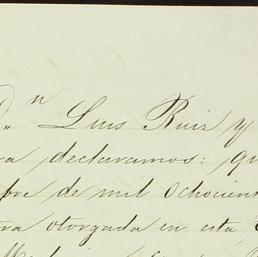 Dn Luis Ruiz y
declaramos: qu
bre de mil ochocient
ra otorgada en esta